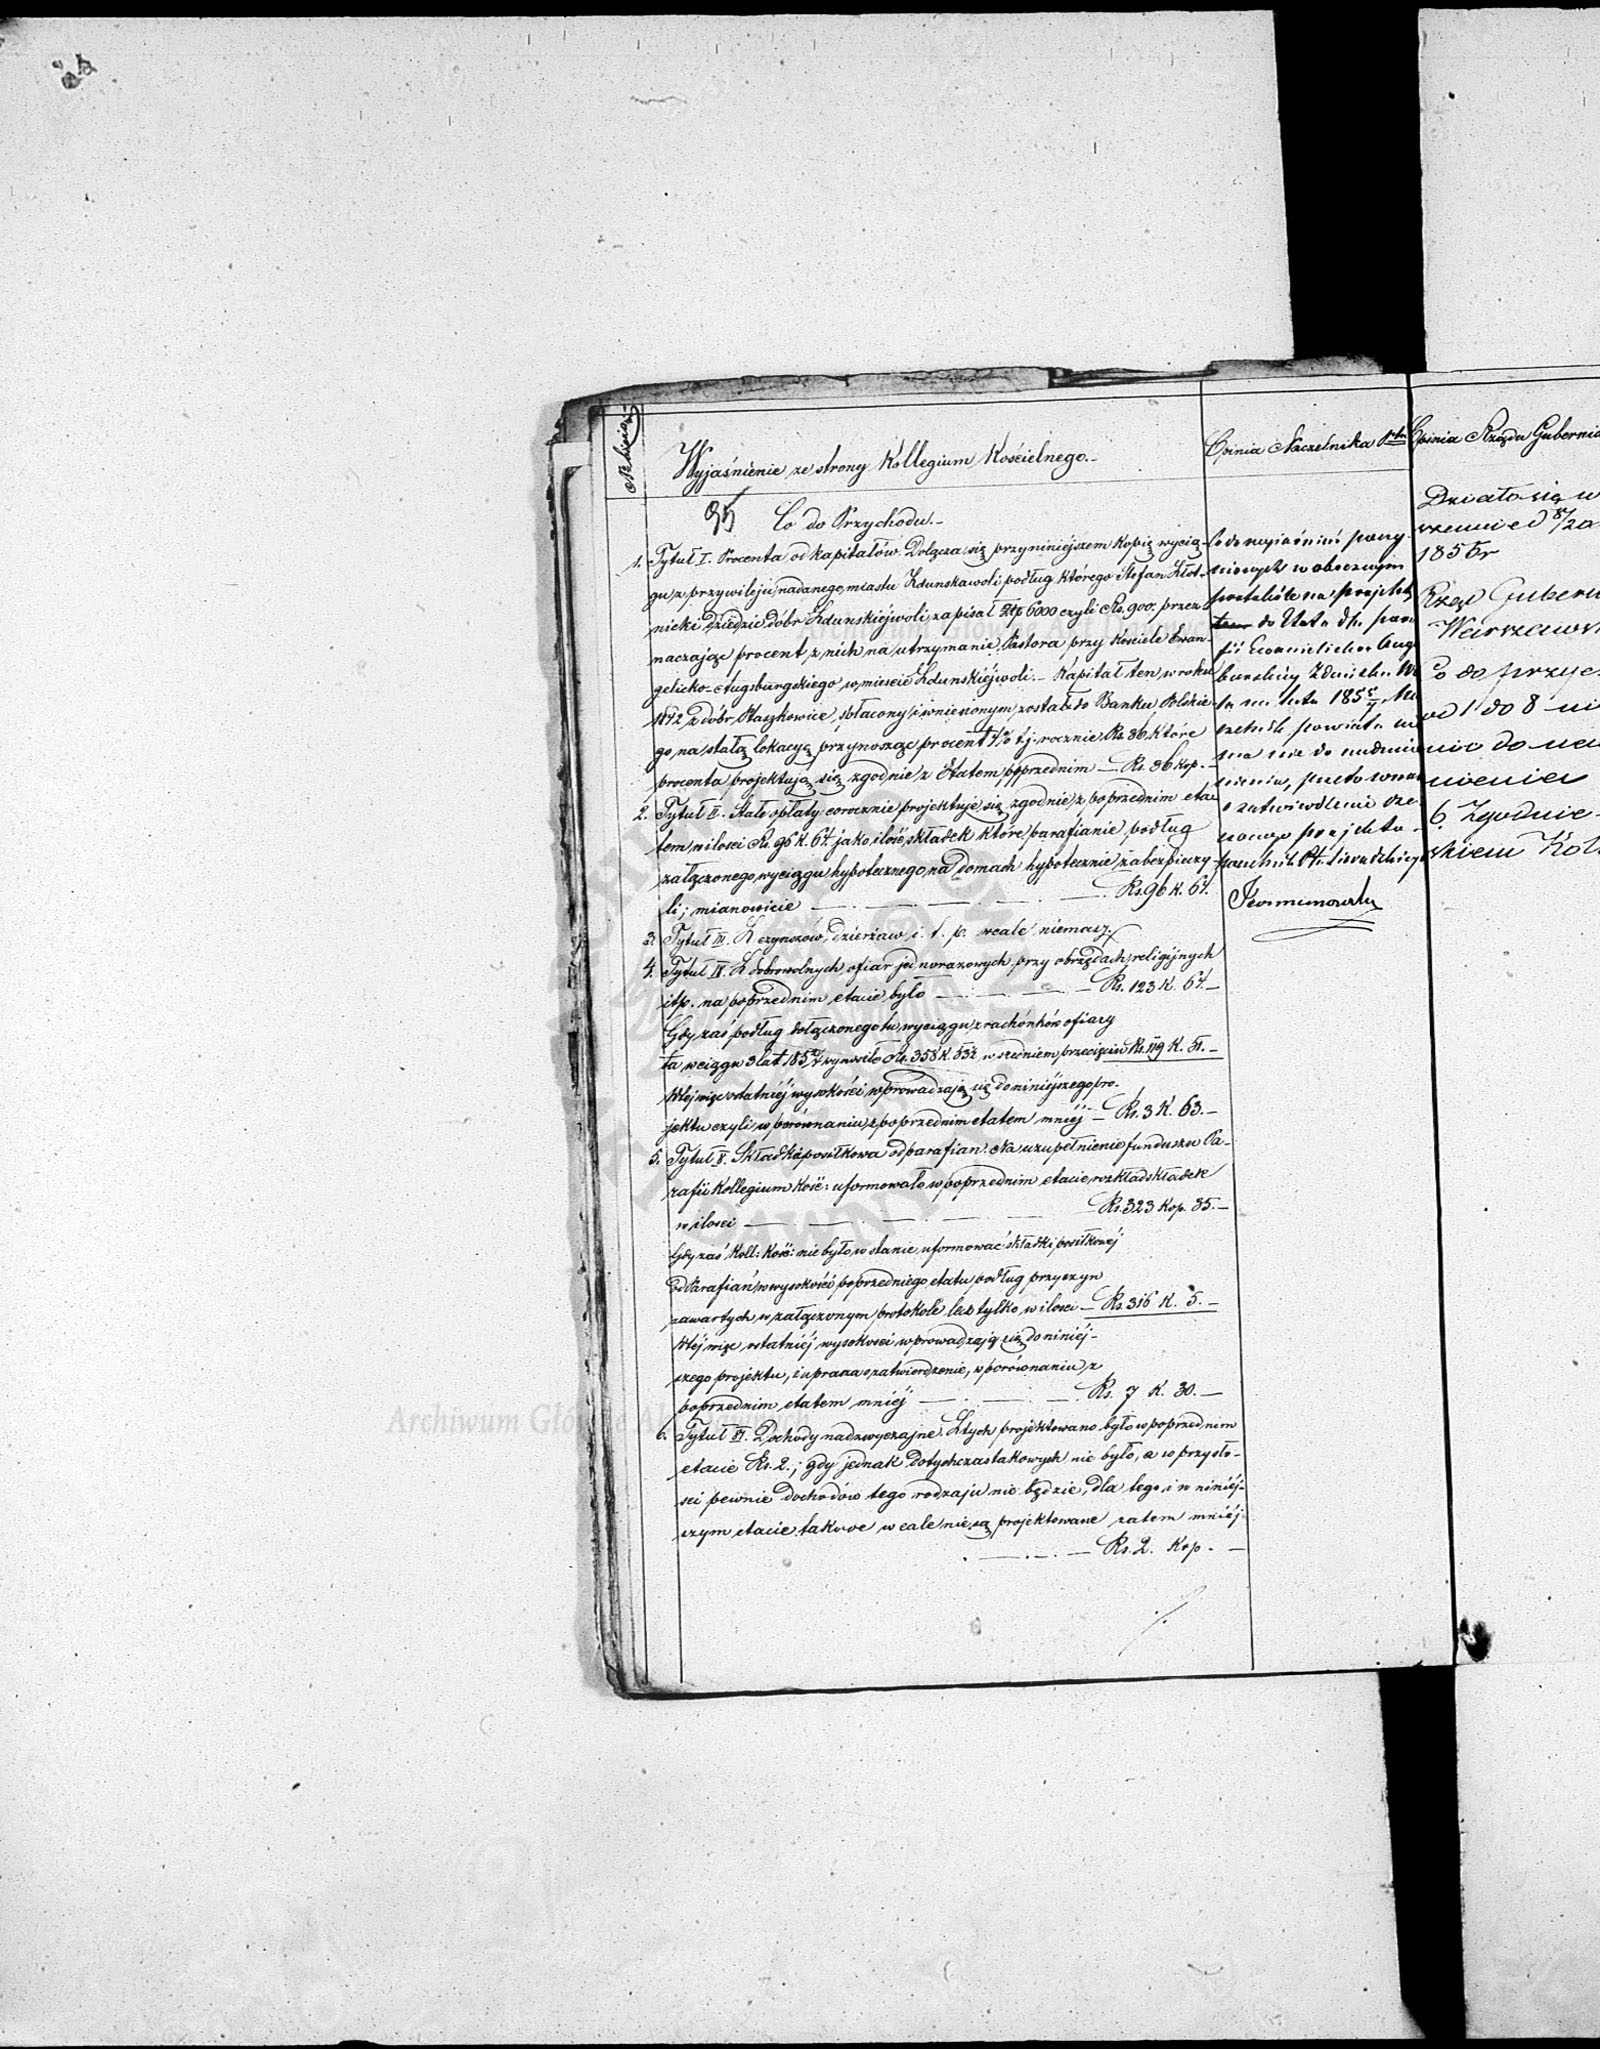 Wyjaśnienie ze strony Kollegium Kościelnego.-
95
Co do Przychodu.-
1. Tytuł I. Procenta od kapitałów. Dołącza się przy niniejszem kopię wycią-
gu z przywileju nadanego miastu Zduńskawoli podług którego Stefan Złot-
nicki Dziedzic dóbr Zduńskiéjwoli zapisał Złp 6000 czyli Rs. 900. przez-
naczając procent z nich na utrzymanie Pastora przy Kościele Ewan-
gelicko-Augsburgskiego w mieście Zduńskiéjwoli.- Kapitał ten w roku
1842 z dóbr Ptaszkowice, spłacony i wniesionym został do Banku Polskie-
go na stałą lokacyę przynosząc procent 4% t.j. rocznie Rs. 36 które
procenta projektują się zgodnie z Etatem poprzednim — Rs. 36 kop. -
2. Tytuł II. Stałe opłaty corocznie projektuje się zgodnie z poprzednim eta-
tem w ilości Rs. 96 k. 64. jako ilość składek które parafianie podług
załączonego wyciągu hypotecznego na domach hypotecznie zabezpieczy-
li; mianowicie — Rs. 96 k. 64.
3. Tytuł III. Z czynszów, dzierżaw i. t. p. wcale niemasz.
4. Tytuł IV. Z dobrowolnych ofiar jednorazowych przy obrzędach religijnych
itp. na poprzednim etacie było — Rs. 123 K. 64.—
Gdy zaś podług dołączonego tu wyciągu z rachónków ofiary
ta w ciągu 3 lat wynosiło Rs. 358 K. 53½ w średniem przecięciu Rs. 119 K. 51.-
W téj więc ostatniéj wysokości wprowadzają się do niniejszego pro-
jektu czyli w porównaniu z poprzednim etatem mniéj — Rs. 3 K. 63.-
5. Tytuł V. Składka posiłkowa od parafian. Na uzupełnienie funduszu Pa-
rafii Kollegium Kość: uformowało w poprzednim etacie rozkład składek
w ilości — Rs. 323 Kop. 35.-
Gdy zaś Koll: Kość: nie było w stanie uformować składki posiłkowéj
od Parafian w wysokości poprzedniego etatu podług przyczyn
zawartych w załączonym protokole lecz tylko w ilości — Rs. 316 K. 5.-
W téj więc ostatniéj wysokości wprowadzają się do niniéj-
szego projektu, i uprasza o zatwierdzenie, w porównaniu z
poprzednim etatem mniéj — Rs. 7 K. 30.—
6. Tytuł VI. Dochody nadzwyczajne. Z tych projektowano było w poprzednim
etacie Rs. 2.; gdy jednak dotychczas takowych nie było, a w przyszło-
ści pewnie dochodów tego rodzaju nie będzie, dla tego i w niniéj-
szym etacie takowe wcale nie są projektowane zatem mniéj
— Rs. 2. Kop. —
Opinia Naczelnika Ptu
Co do wyjaśnień poczy-
nionych w obecnym
protokóle na projekt
do Etatu dla para
fii Ewanielicko Aug
burskiéj Zduńska Wo
la na lata 185
czelnik powiatu
ma nic do nadmie
nienia, przeto wnosi
o zatwierdzenie rze
czonego projektu.
Opinia Rządu Gubernia
Działo się w
1858r
Rząd Guberni
Warszawsk
Co do przyc
od 1 do 8 ni
nic do na
mienienia
6. Zgodnie
Archiwum Główne Akt Dawnych